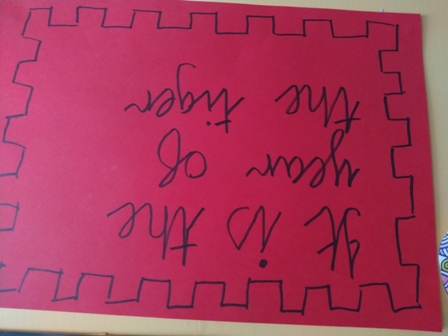 It is the
year of
the tiger